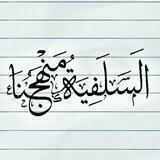 السَلفِيَة مَنهَجُنَا